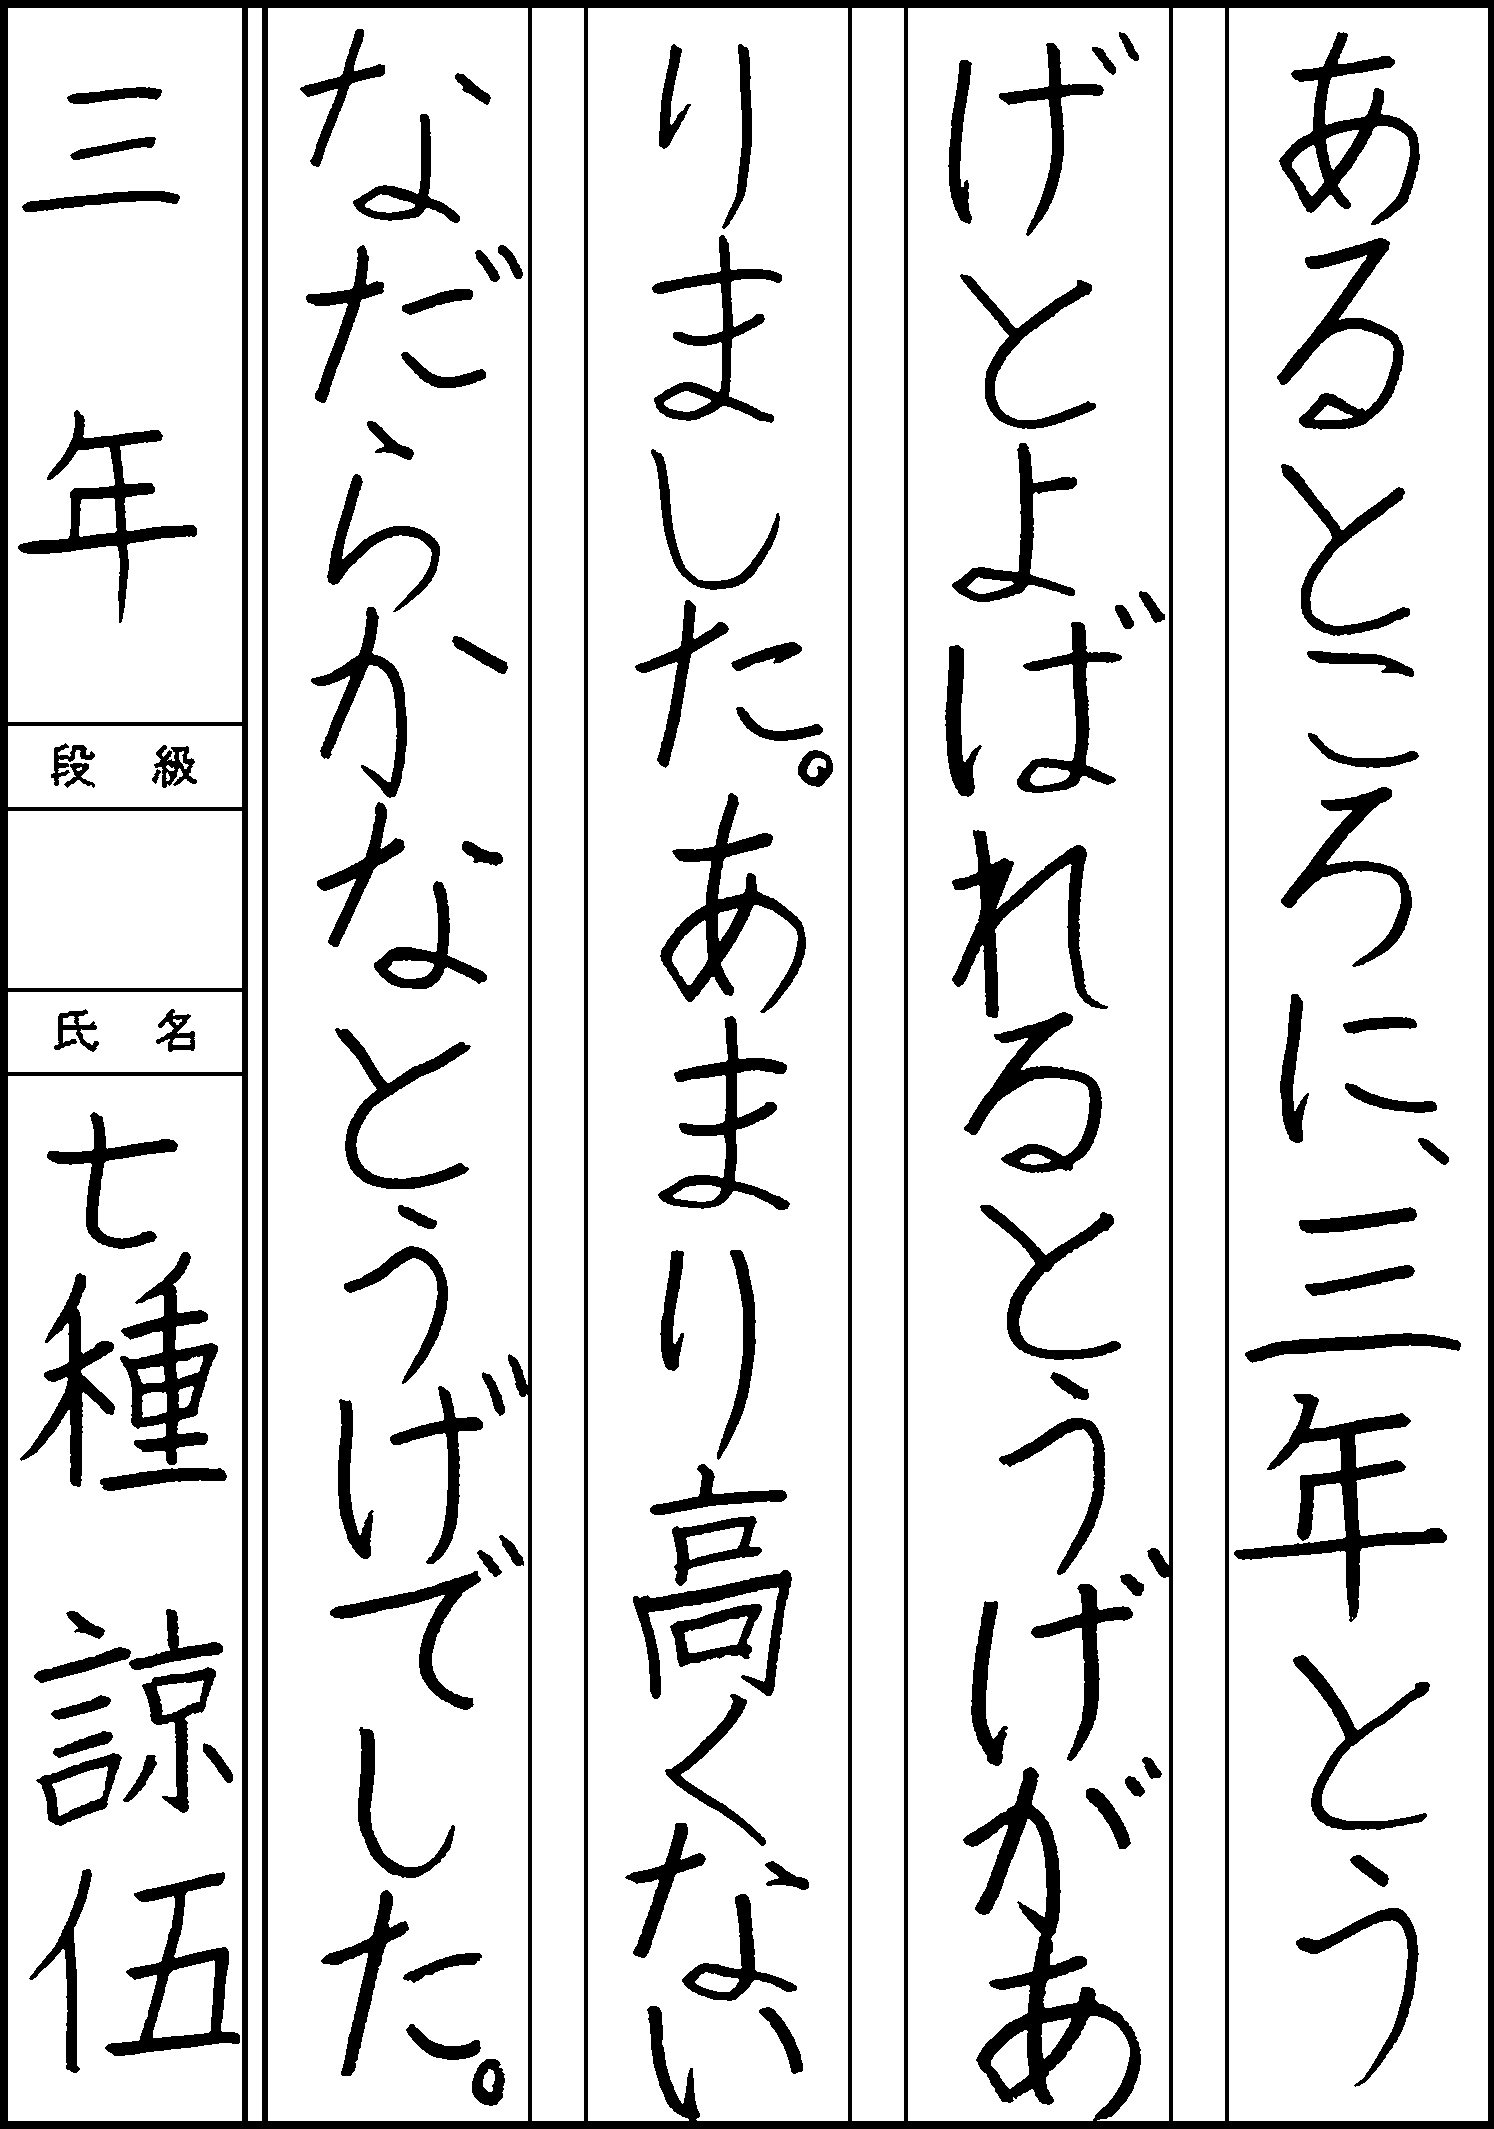 あるところに、三年とう
げとよばれるとうげがあ
りました。あまり高くない
なだらかなとうげでした。
三年
段級
氏名
七種諒伍